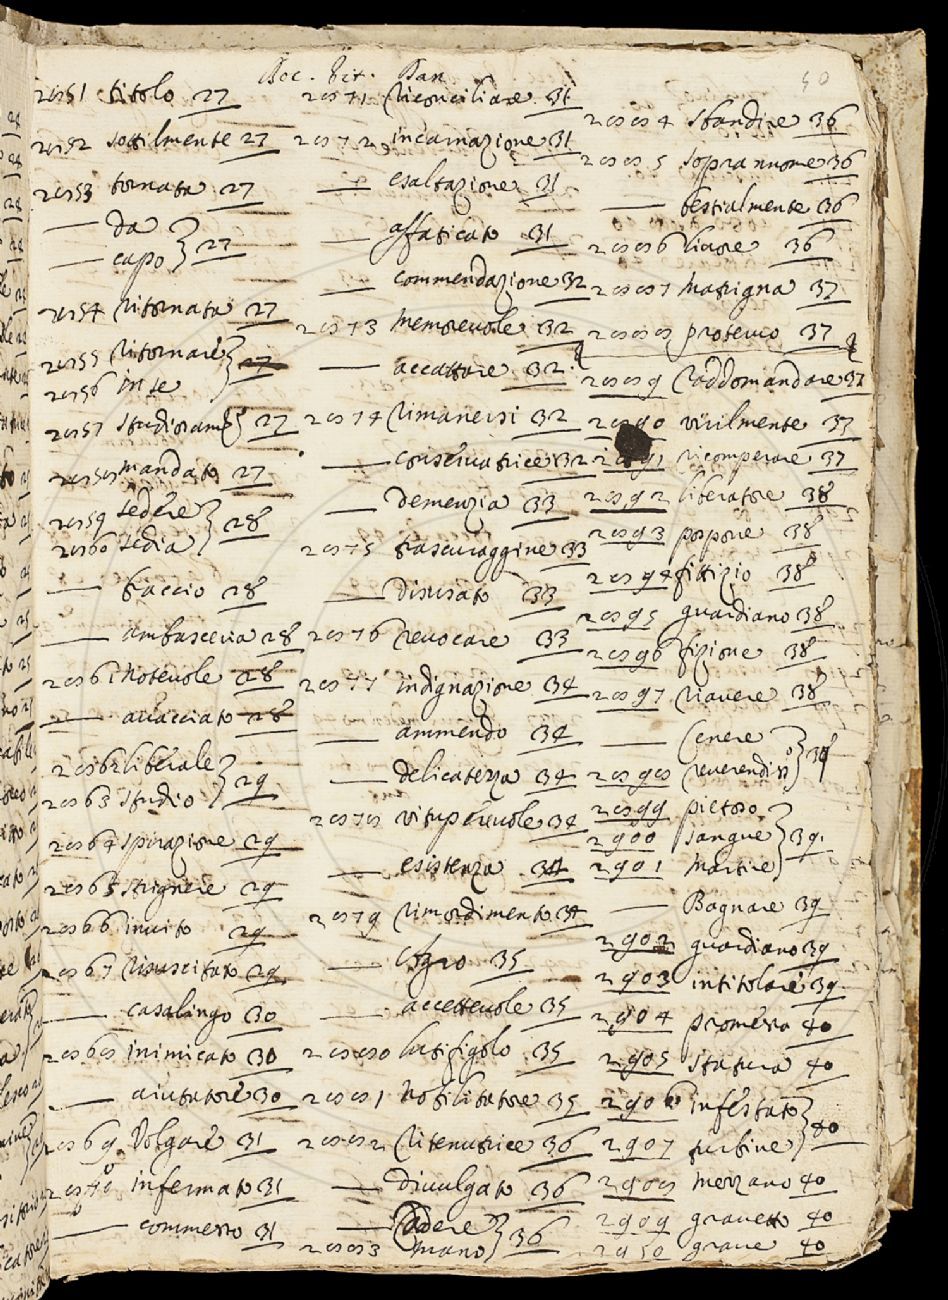 Boc. Vit. Dan.
50
2851 titolo 27
2852 sottilmente 27
2853 tornata 27
— da
— capo } 27
2854 Ritornata 27
2855 Ritornare
2856 in se } 27
2857 studioram.e 27
2858 mandato 27
2859 sedere
2860 sedia } 28
— braccio 28
— ambasceria 28
2861 Notevole 28
— avacciato 28
2862 liberale
2863 studio } 29
2864 spirazione 29
2865 strignere 29
2866 invito 29
2867 Risuscitato 29
— casalingo 30
2868 inimicato 30
— aiutatore 30
2869 Volgare 31
2870 infermato 31
— commesso 31
2871 Riconciliare 31
2872 incarnazione 31
— esaltazione 31
— affaticato 31
— commendazione 32
2873 Memorevole 32
— accattare 32
2874 Rimanersi 32
— conservatrice 32
— Demenzia 33
2875 trascuraggine 33
— Disusato 33
2876 revocare 33
2877 indignazione 34
— ammendo 34
— delicatezza 34
2878 vituperevole 34
— esistenza 34
2879 Rimordimento 34
— 35
— accettevole 35
2880 35
2881 Nobilitatore 35
2882 Ritenutrice 36
— divulgato 36
— Cadere
2883 mano } 36
2884 sbandire 36
2885 soprannome 36
— bestialmente 36
2886 livore 36
2887 Matrigna 37
2888 protervo 37
2889 Raddomandare 37
2890 virilmente 37
2891 ricomperare 37
2892 liberatore 38
2893 porpore 38
2894 fittizio 38
2895 guardiano 38
2896 fizione 38
2897 riavere 38
— Cenere
2898 reverendiss.o } 38
2899 pietoso
2900 sangue
2901 Martire } 39.
— Bagnare 39
2902 guardiano 39
2903 intitolare 39
2904 promessa 40
2905 statura 40
2906 infestato
2907 turbine } 40
2908 mezzano 40
2909 gravetto 40
2910 grave 40